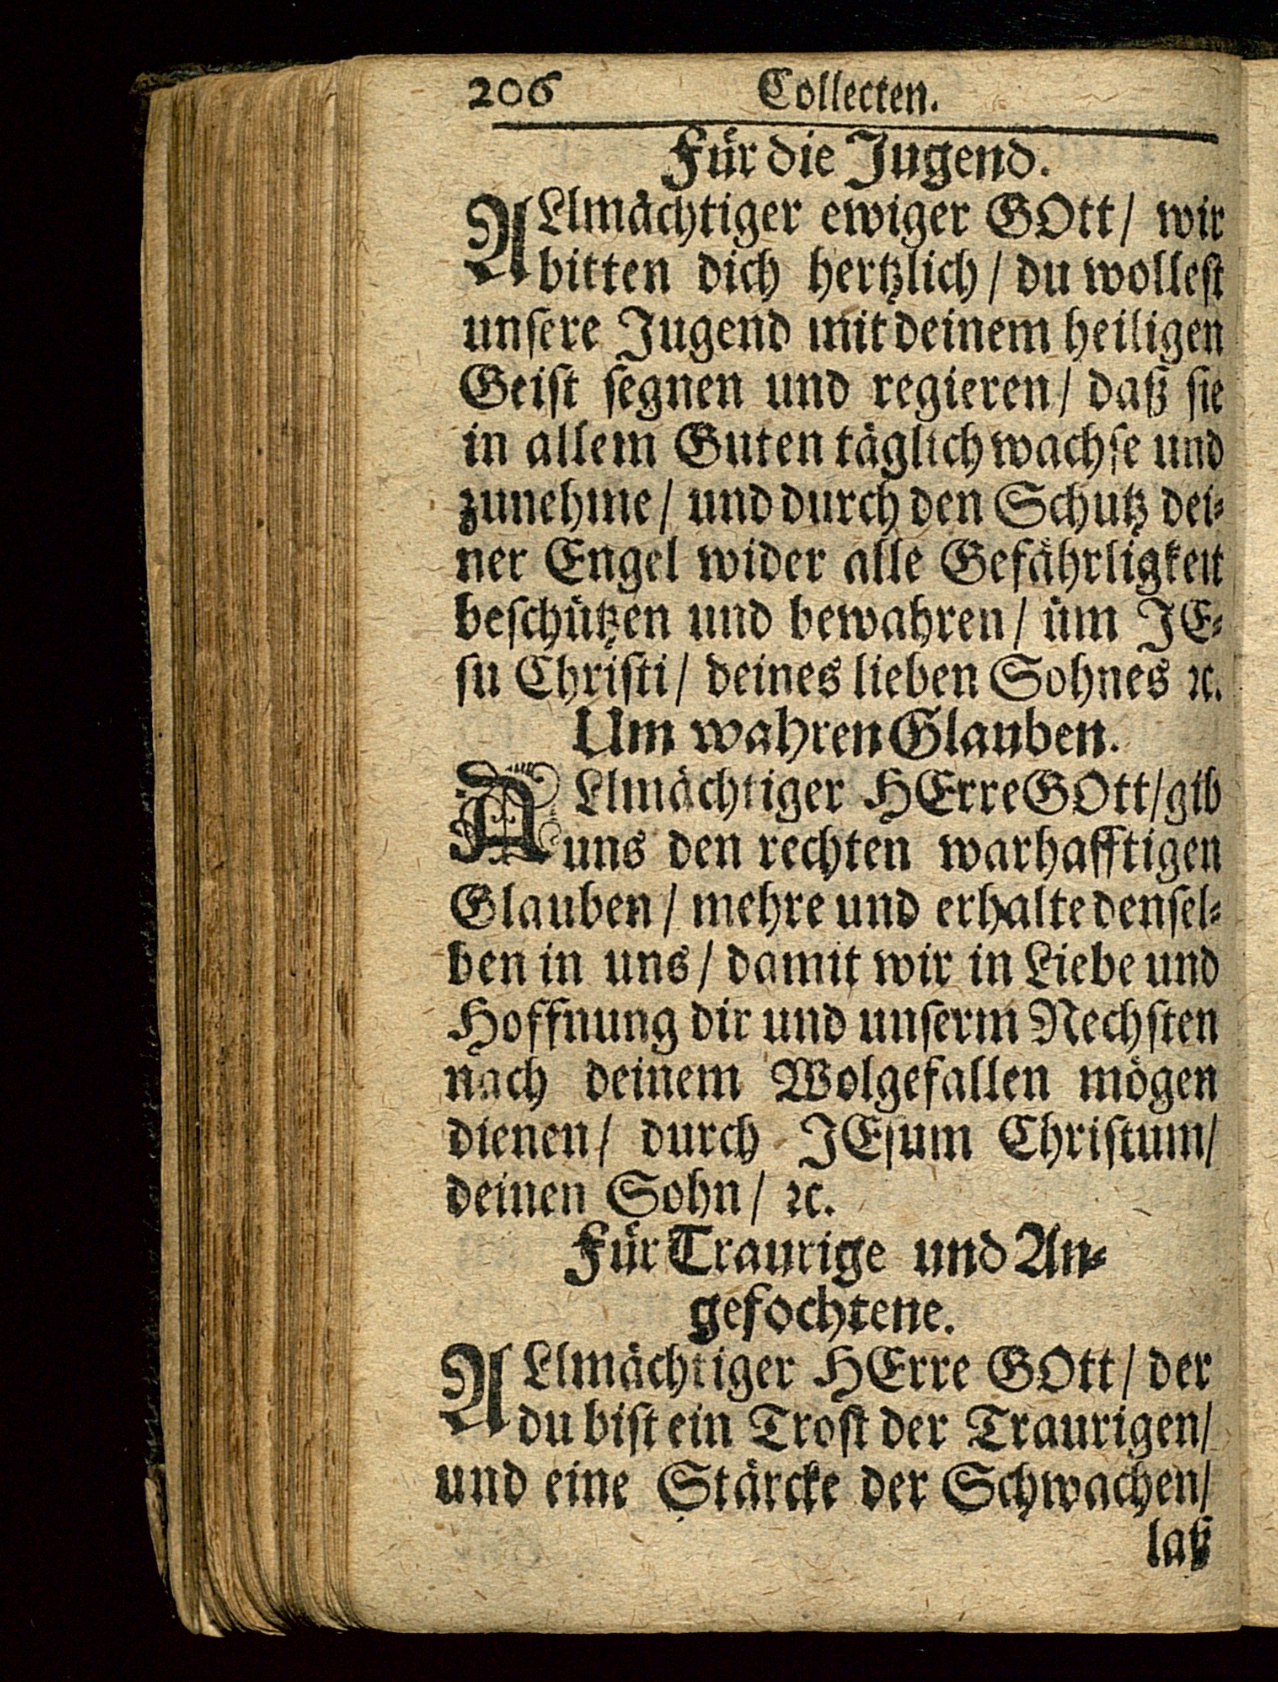 206 Collecten.
Für die Jugend.
ALlmächtiger ewiger GOtt/ wir
bitten dich hertzlich/ du wollest
unsere Jugend mit deinem heiligen
Geist segnen und regieren/ daß sie
in allem Guten täglich wachse und
zunehme/ und durch den Schutz dei-
ner Engel wider alle Gefährligkeit
beschützen und bewahren/ üm JE-
su Christi/ deines lieben Sohnes ꝛc.
Um wahren Glauben.
ALlmächtiger HErre GOtt/ gib
uns den rechten warhafftigen
Glauben/ mehre und erhalte densel-
ben in uns/ damit wir in Liebe und
Hoffnung dir und unserm Nechsten
nach deinem Wolgefallen mögen
dienen/ durch JEsum Christum/
deinen Sohn/ ꝛc.
Für Traurige und An-
gefochtene.
ALlmächtiger HErre GOtt/ der
du bist ein Trost der Traurigen/
und eine Stärcke der Schwachen/
laß